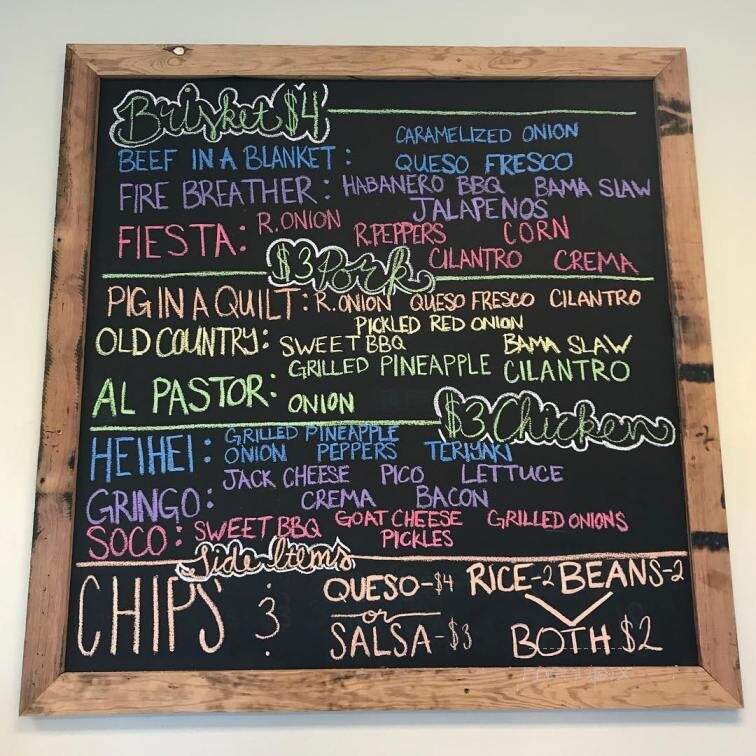 Brisket $4
BEEF IN A BLANKET: CARAMELIZED ONION
QUESO FRESCO
FIRE BREATHER: HABANERO BBQ BAMA SLAW
JALAPENOS
FIESTA: R.ONION R.PEPPERS CORN
CILANTRO CREMA
$3 Pork
PIG IN A QUILT: R.ONION QUESO FRESCO CILANTRO
OLD COUNTRY: PICKLED RED ONION
SWEET BBQ BAMA SLAW
AL PASTOR: GRILLED PINEAPPLE CILANTRO
ONION
$3 Chicken
HEIHEI: GRILLED PINEAPPLE
ONION PEPPERS TERIYAKI
GRINGO: JACK CHEESE PICO LETTUCE
CREMA BACON
SOCO: SWEET BBQ GOAT CHEESE GRILLED ONIONS
PICKLES
Side Items
CHIPS : 3 QUESO-$4 RICE-2 BEANS-2
or
SALSA-$3 BOTH $2